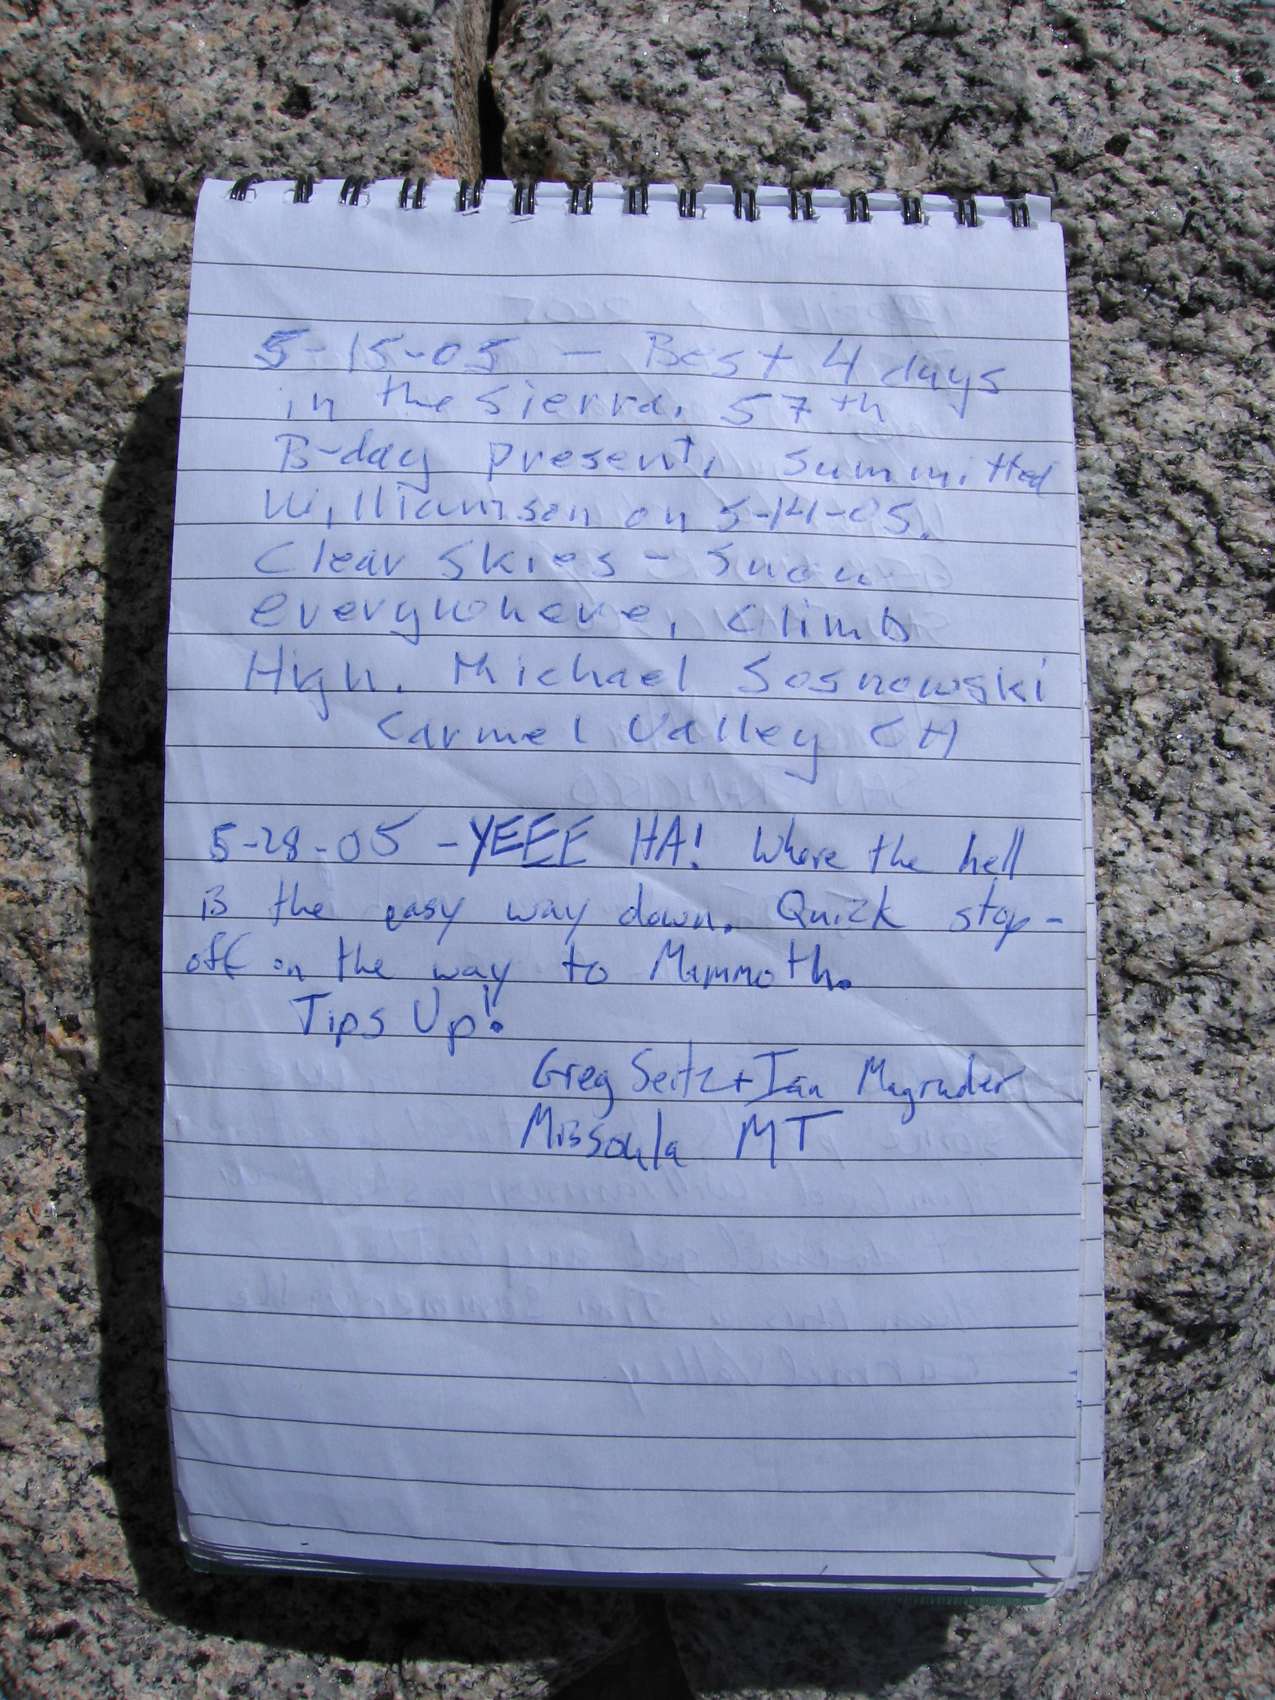 5-15-05 - Best 4 days
in the Sierra. 57th
B-day present, summitted
Williamson on 5-14-05.
Clear Skies - Snow
everywhere, Climb
High. Michael Sosnowski
Carmel Valley CA
5-28-05 - YEEE HA! Where the hell
is the easy way down. Quick stop-
off on the way to Mammoth.
Tips Up!
Greg Seitz + Ian Magruder
Missoula MT